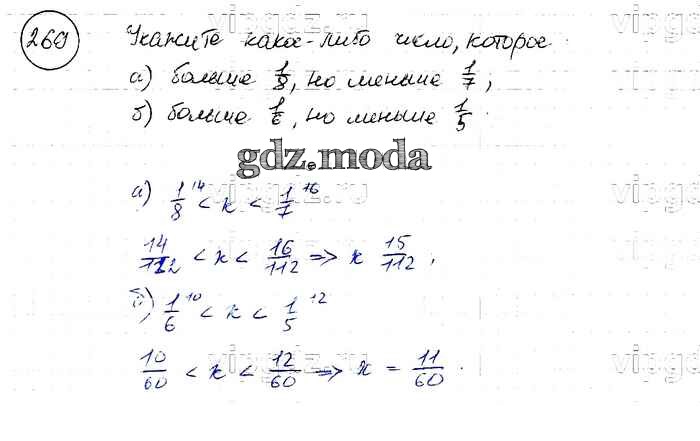 269 Укажите какое-либо число, которое
а) больше 1/8, но меньше 1/7;
б) больше 1/6, но меньше 1/5.
gdz.moda
а) 1/8 ^14 < x < 1/7 ^16
14/112 < x < 16/112 => x 15/112,
б) 1/6 ^10 < x < 1/5 ^12
10/60 < x < 12/60 => x = 11/60.